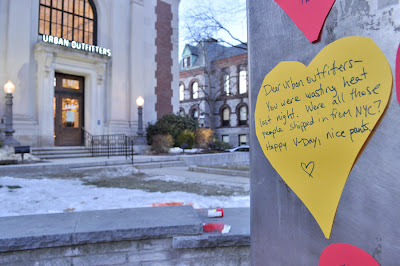 URBAN OUTFITTERS
Dear Urban Outfitters-
You were wasting heat
last night. Were all those
people shipped in from NYC?
Happy V-Day, nice pants.